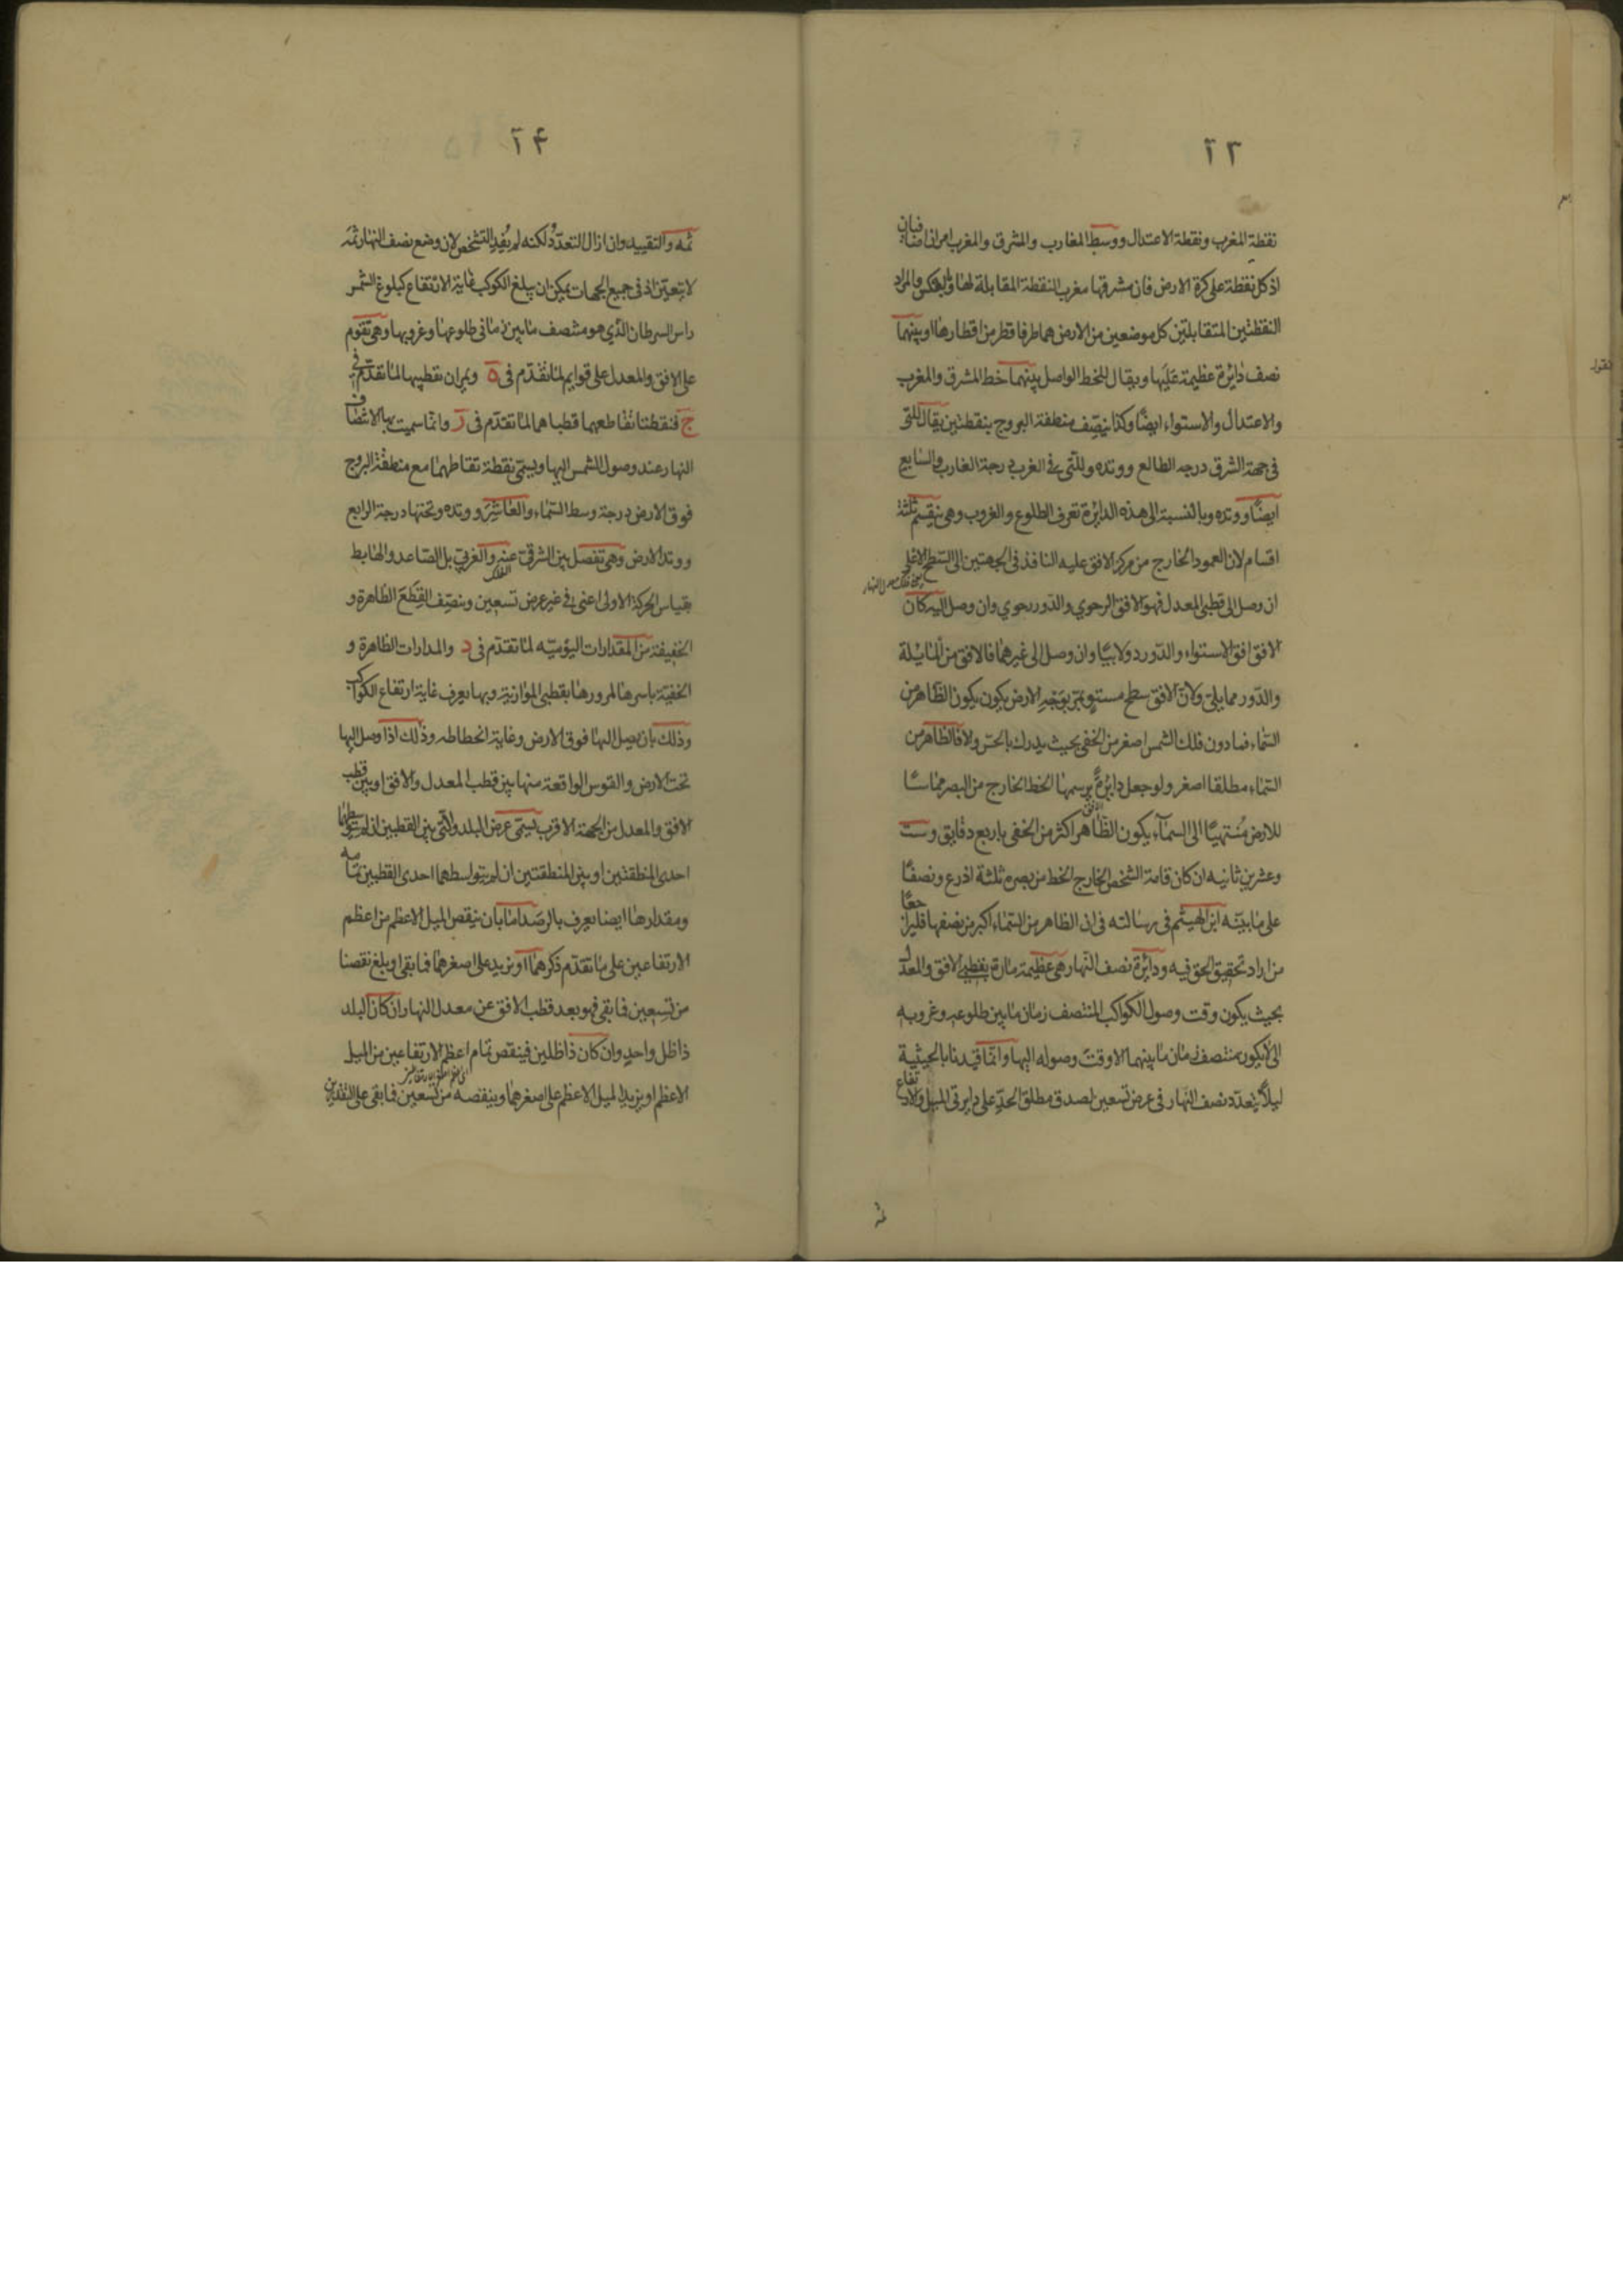 ٢٣
نقطة المغرب ونقطة الاعتدال ووسط المغارب والمشرق والمغرب امران اضافيان
اذ كل نقطة على كرة الارض فان مشرقها مغرب النقطة المقابلة لها وبالعكس والمراد
النقطتين المتقابلتين كل موضعين من الارض هما طرفا قطر من اقطارها وبينهما
نصف دائرة عظيمة عليها ويقال للخط الواصل بينهما خط المشرق والمغرب
والاعتدال والاستواء ايضًا وكذا ينصّف منطقة البروج بنقطتين يقال للتى
فى جهة الشرق درجه الطالع ووتده وللتى فى الغرب درجة الغارب والسابع
ايضًا ووتده وبالنسبة الى هذه الدائرة تعرف الطلوع والغروب وهى ينقسم ثلثة
اقسام لان العمود الخارج من مركز الافق عليه النافذ فى الجهتين الى السطح الاعلى
ان وصل الى قطبى المعدل فهو الافق الرحوي والدور رحوي وان وصل اليه كان
الافق افق الاستواء والدّور دولابيًا وان وصل الى غيرهما فالافق من المايلة
والدّور حمايلى ولانّ الافق سطح مستوٍ يمرّ بوجه الارض يكون يكون الظاهر من
السماء فما دون فلك الشمس اصغر من الخفى بحيث يدرك بالحسّ ولا فالظاهر من
السماء مطلقا اصغر ولو جعل دائرةً يرسمها الخط الخارج من البصر مماسًا
للارض مُنتهيًا الى السمآء يكون الظاهر اكثر من الخفى باربع دقايق وست
وعشرين ثانيه ان كان قامة الشخص الخارج الخط من بصره ثلثة اذرع ونصفًا
على ما بيّنه ابن الهيثم فى رسالته فى ان الظاهر من السماء اكبر من نصفها فليراجعها
من اراد تحقيق الحق فيه ودائرة نصف النهار هى عظيمة مارة بقطبى الافق والمعدل
بحيث يكون وقت وصول الكواكب المنتصف زمان ما بين طلوعه وغروبه
الى لا يكون منتصف زمان ما بينهما الا وقت وصوله اليها وانما قيدنا بالحيثية
ليلا يتعدّد نصف النهار فى عرض تسعين لصدق مطلق الحدّ على دايرتى الميل والارتفاع
٢۴
ثمه والتقييد وان ازال التعدّد لكنه لم يُفِد التشخص لان وضع نصف النهار ثمّه
لا يتعيّن اذ فى جميع الجهات يمكن ان يبلغ الكوكب غاية الارتفاع كبلوغ الشمس
راس السرطان الذي هو منتصف ما بين زمانى طلوعها وغروبها وهى تقوم
على الافق والمعدل على قوايم لما تقدّم فى ه ويمران بقطبيها لما تقدّم فى
ج فنقطتا تقاطعهما قطباها لما تقدّم فى ز وانما سميت بها لانتصاف
النهار عند وصول الشمس اليها ويسمّى نقطة تقاطها مع منطقة البروج
فوق الارض درجة وسط السّماء والعاشِر ووتده وتحتها درجة الرابع
ووتد الارض وهى تفصل بين الشرقى عنه والغربى بل الصّاعد والهابط
بقياس الحركة الاولى اعنى فى غير عرض تسعين وينصّف القِطَع الظاهرة و
الخفيفة من المقدارات اليوميّه لما تقدّم فى د والمدارات الظاهرة و
الخفيّة باسرها لمرورها بقطبى الموازية وبها يعرف غاية ارتفاع الكواكب
وذلك بان يصل اليها فوق الارض وغاية انحطاطه وذلك اذا وصل اليها
تحت الارض والقوس الواقعة منها بين قطب المعدل والافق او بين قطب
الافق والمعدل من الجهة الاقرب يسمّى عرض البلد والتى بين القطبين ان لم يتوسطهما
احدى المنطقتين او بين المنطقتين ان لم يتوسطهما احدى القطبين تمامه
ومقدارها ايضا يعرف بالرصد امّا بان ينقص الميل الاعظم من اعظم
الارتفاعين على ما تقدّم ذكرهما او يزيد على اصغرهما فما بقى او بلغ نقصنا
من تسعين فما بقى فهو بعد قطب الافق عن معدل النهار ان كان البلد
ذا ظل واحدٍ وان كان ذا ظلين فينقص تمام اعظم الارتفاعين من الميل
الاعظم او يزيد الميل الاعظم على اصغرهما وينقصه من تسعين فما بقى على التقديرين